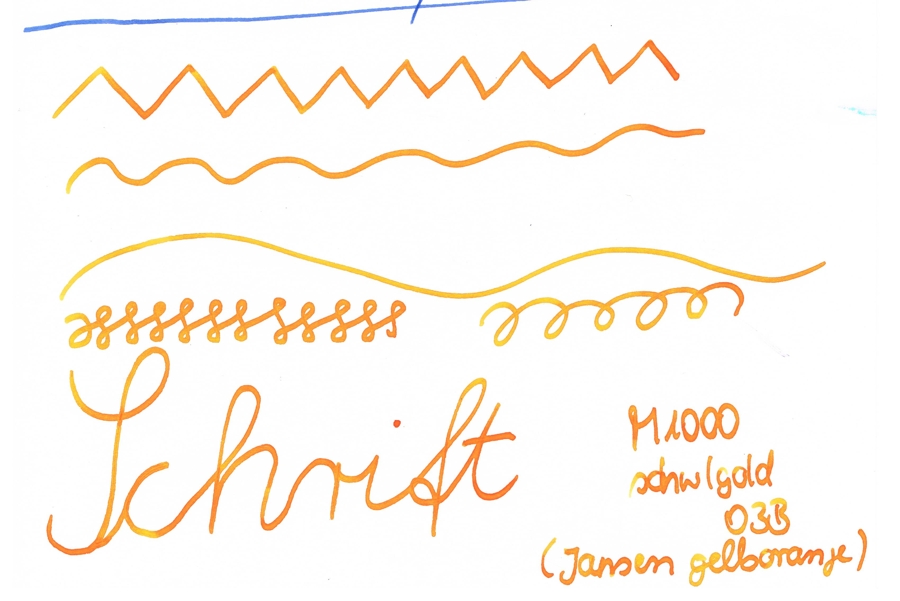 Schrift
M1000
schw/gold
O3B
(Jansen gelborange)